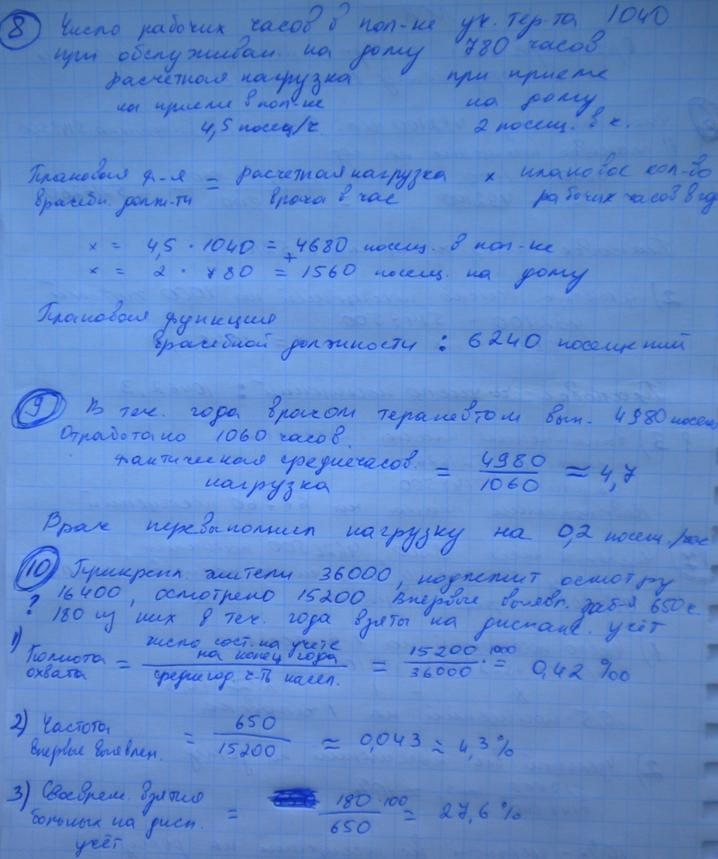 8 Число рабочих часов в пол-ке уч. тер-та 1040
при обслуживан. на дому 780 часов
расчетная нагрузка при приеме
на приеме в пол-ке на дому
4,5 посещ/ч 2 посещ. в ч.
Плановая ф-я врачебн. должн-ти = расчетная нагрузка врача в час × плановое кол-во рабочих часов в год
x = 4,5 · 1040 = 4680 посещ. в пол-ке
+
x = 2 · 780 = 1560 посещ. на дому
Плановая функция
врачебной должности : 6240 посещений
9 В теч. года врачом терапевтом вып. 4980 посещ.
Отработано 1060 часов.
Фактическая среднечасов. нагрузка = 4980 / 1060 ≈ 4,7
Врач перевыполнил нагрузку на 0,2 посещ./час
10 Прикрепл жители 36000, подлежит осмотру
? 16400, осмотрено 15200. Впервые выявл. заб-я 650 ч.
180 из них в теч. года взяты на диспанс. учёт
1) Полнота охвата = число сост. на учете на конец года / среднегод. ч-ть насел. = 15200 · 100 / 36000 = 0,42 ‰
2) Частота впервые выявлен. = 650 / 15200 ≈ 0,043 ≈ 4,3 %
3) Своеврем. взятия больных на дисп. учёт = 180 · 100 / 650 = 27,6 %